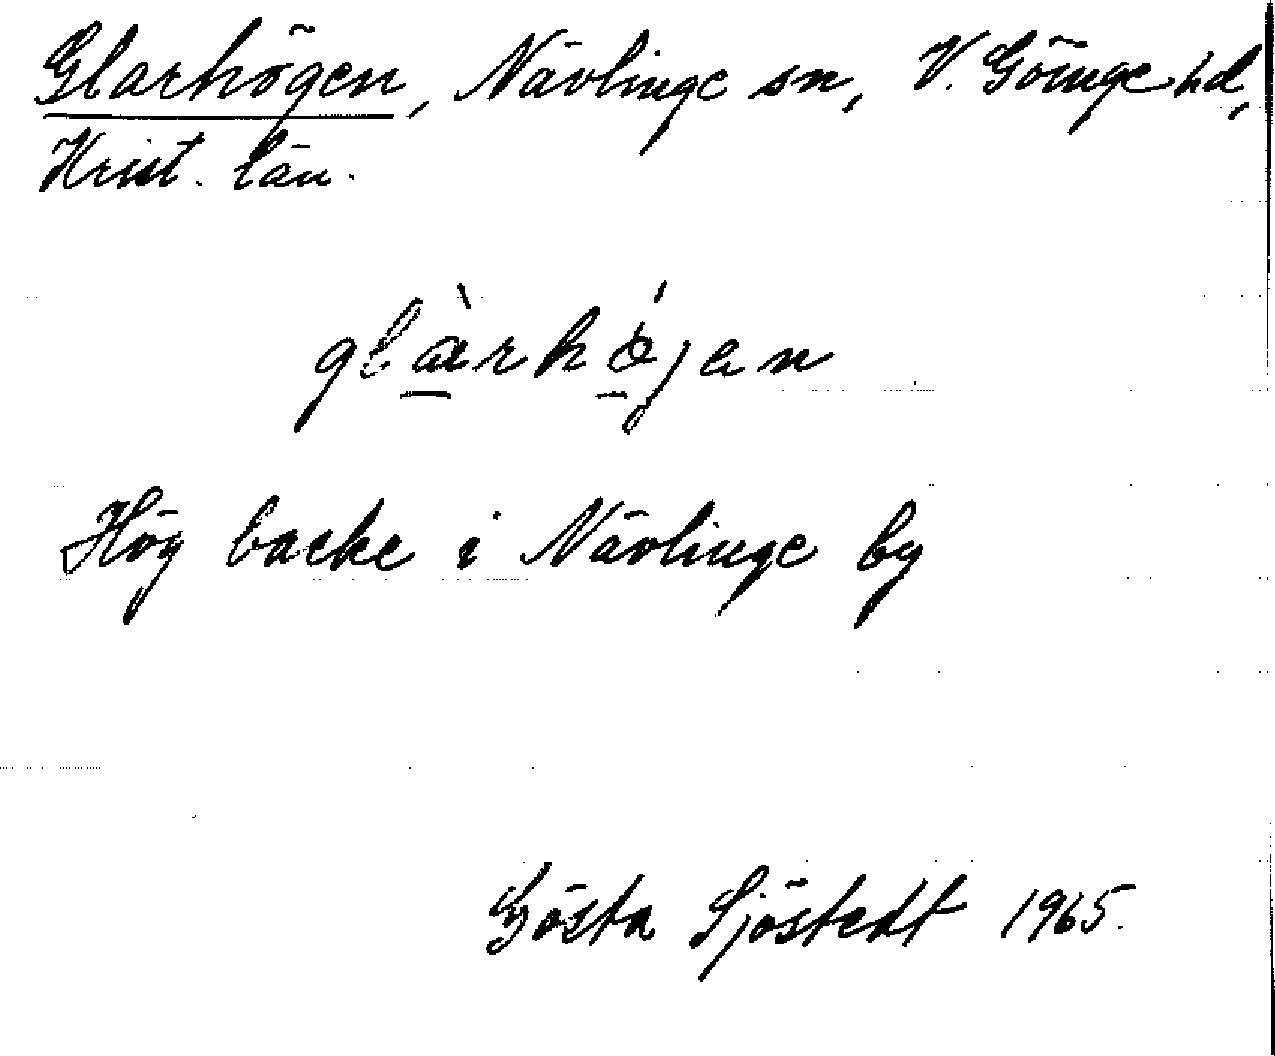 Glarhögen, Nävlinge sn, V. Göinge hd,
Krist. län.
glàrhǿjen
Hög backe i Nävlinge by
Gösta Sjöstedt 1965.